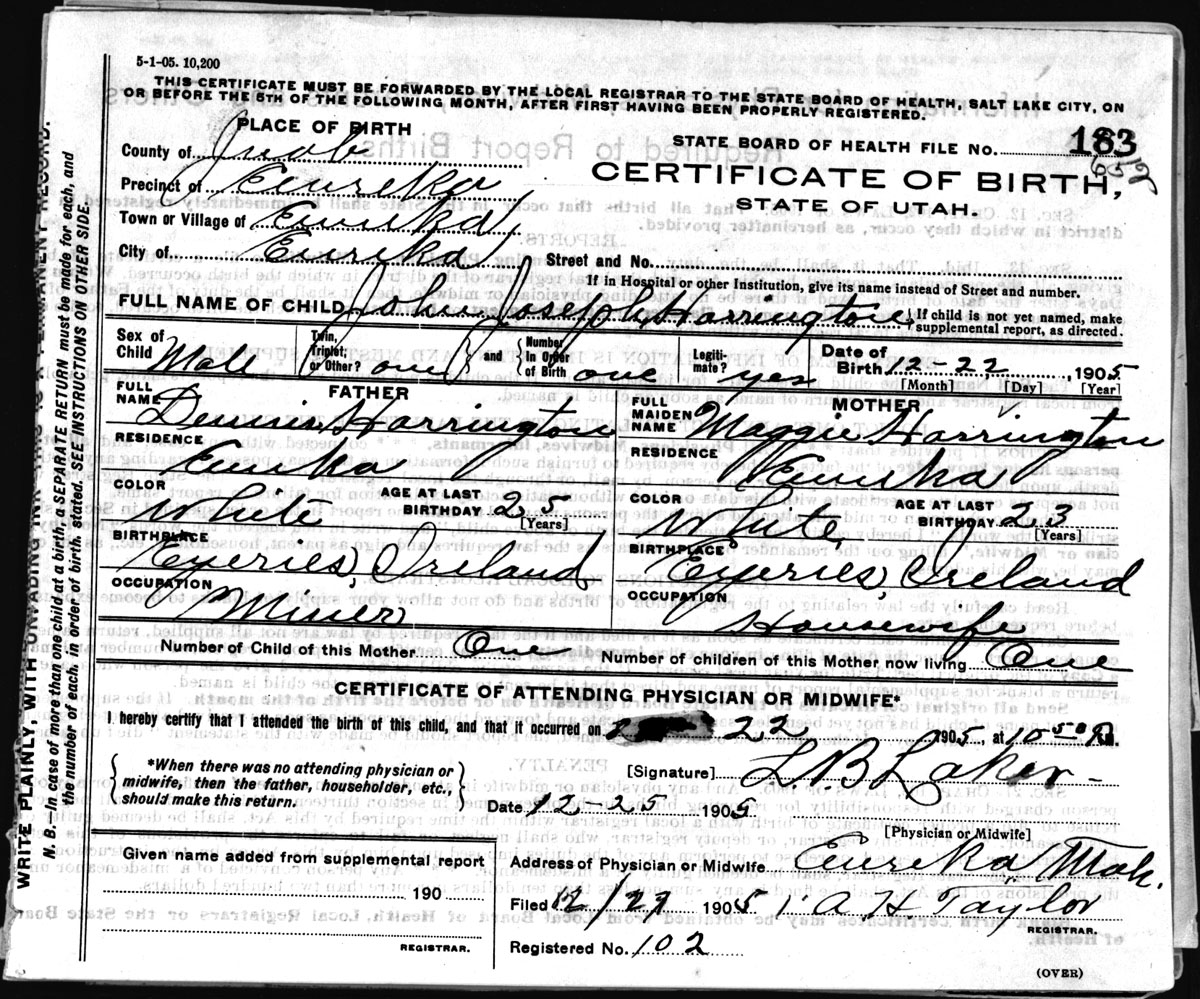 5-1-05. 10,200
THIS CERTIFICATE MUST BE FORWARDED BY THE LOCAL REGISTRAR TO THE STATE BOARD OF HEALTH, SALT LAKE CITY, ON
OR BEFORE THE 5TH OF THE FOLLOWING MONTH, AFTER FIRST HAVING BEEN PROPERLY REGISTERED.
PLACE OF BIRTH
County of Juab
Precinct of Eureka
Town or Village of Eureka
City of Eureka
STATE BOARD OF HEALTH FILE No. 183
CERTIFICATE OF BIRTH,
STATE OF UTAH.
Street and No.
If in Hospital or other Institution, give its name instead of Street and number.
FULL NAME OF CHILD John Joseph Harrington
If child is not yet named, make
supplemental report, as directed.
Sex of Child Male
Twin, Triplet, or Other? one
and
Number in Order of Birth one
Legitimate? yes
Date of Birth 12-22, 1905
[Month] [Day] [Year]
FATHER
FULL NAME Dennis Harrington
RESIDENCE
Eureka
COLOR White
AGE AT LAST BIRTHDAY 25
[Years]
BIRTHPLACE
Eyeries, Ireland
OCCUPATION
Miner
MOTHER
MAIDEN NAME Maggie Harrington
RESIDENCE
Eureka
COLOR White
AGE AT LAST BIRTHDAY 23
[Years]
BIRTHPLACE
Eyeries, Ireland
OCCUPATION
Housewife
Number of Child of this Mother One
Number of children of this Mother now living One
CERTIFICATE OF ATTENDING PHYSICIAN OR MIDWIFE*
I hereby certify that I attended the birth of this child, and that it occurred on 22 1905, at 10 50 P.M.
*When there was no attending physician or
midwife, then the father, householder, etc.,
should make this return.
[Signature] L B Laker
Date 12-25 1905
[Physician or Midwife]
Given name added from supplemental report
190
REGISTRAR.
Address of Physician or Midwife Eureka Utah.
Filed 12/27 1905 A H Taylor
REGISTRAR.
Registered No. 102
(OVER)
WRITE PLAINLY, WITH UNFADING INK—THIS IS A PERMANENT RECORD.
N. B.—In case of more than one child at a birth, a SEPARATE RETURN must be made for each, and
the number of each, in order of birth, stated. SEE INSTRUCTIONS ON OTHER SIDE.